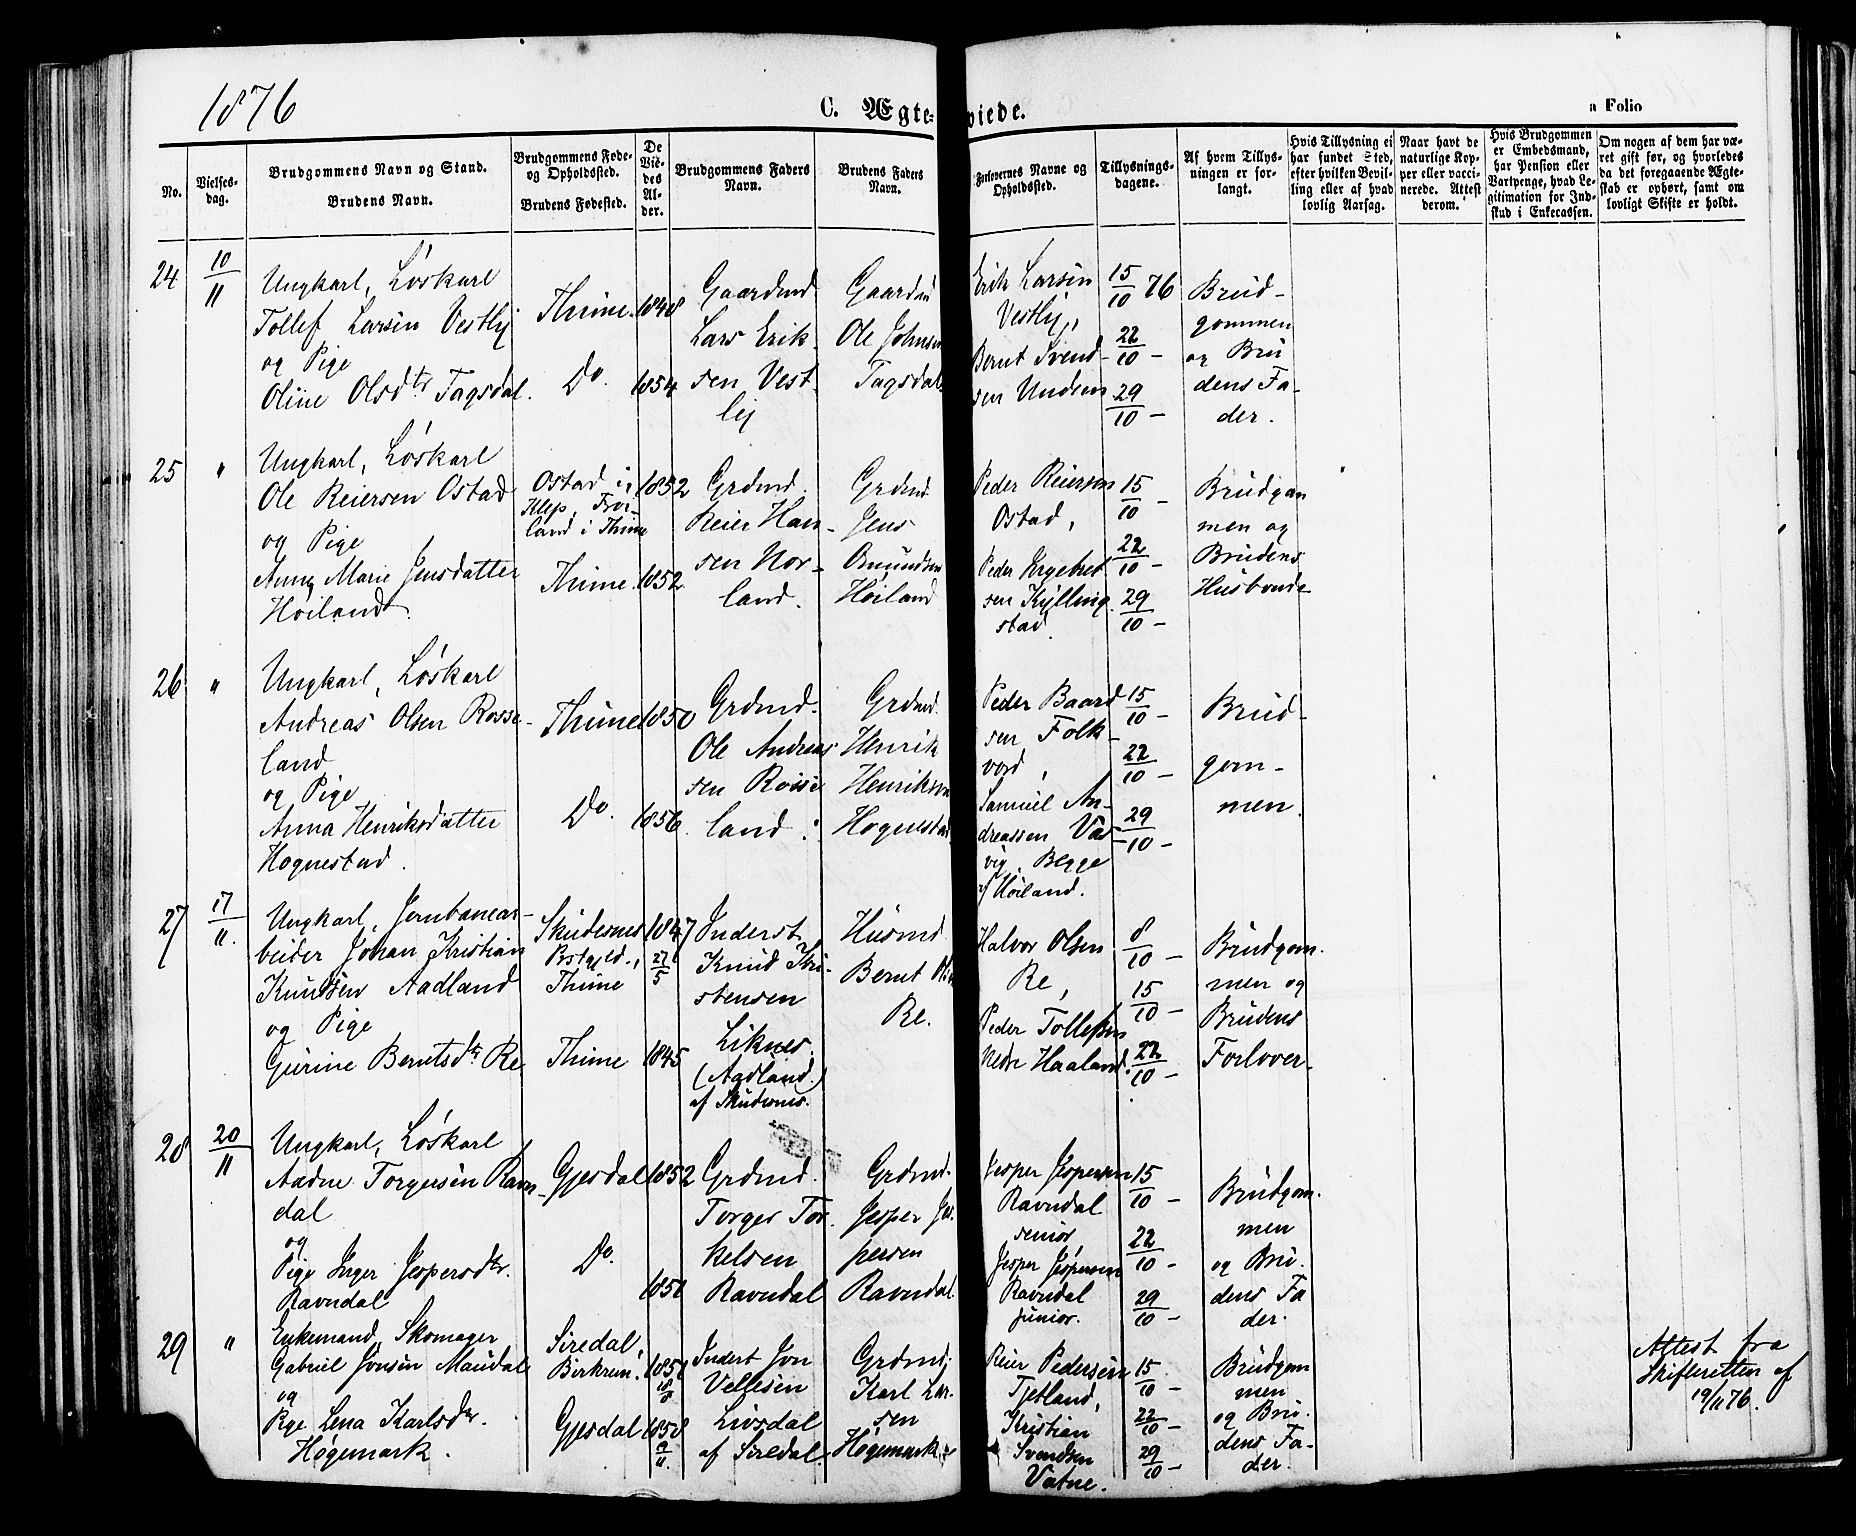 1876
C. Ægteviede.
a Folio
No.
Vielsesdag.
Brudgommens Navn og Stand.
Brudens Navn.
Brudgommens Føde- og Opholdssted.
Brudens Fødested.
De Viedes Alder.
Brudgommens Faders Navn.
Brudens Faders Navn.
Forlovernes Navne og Opholdssted.
Tillysningsdagene.
Af hvem Tillysningen er forlangt.
Hvis Tillysning ei har fundet Sted, efter hvilken Bevilling eller af hvad lovlig Aarsag.
Naar havt de naturlige Kopper eller vaccinerede. Attest derom.
Hvis Brudgommen er Embedsmand, har Pension eller Vartpenge, hvad Legitimation for Indskud i Enkecassen.
Om nogen af dem har været gift før, og hvorledes da det foregaaende Ægteskab er ophørt, samt om lovligt Skifte er holdt.
24
10/11
Ungkarl, Løskarl
Tollef Larsen Vestly
og Pige
Oline Olsdtr Tagsdal.
Thime.
Do.
1848
1854
Gaardmd
Lars Erik-
sen Vest-
lej
Gaardm
Ole Johnsen
Tagsdal
Erik Larsen
Vestly,
Bernt Svend-
sen Undem
15/10 76
22/10 –
29/10 –
Brud-
gommen
og Bru
dens Fa-
der.
25
"
Ungkarl, Løskarl
Ole Reiersen Ostad
og Pige
Anna Marie Jensdatter
Høiland.
Ostad i
Klep, Frø-
land i Thime
Thime.
1852
1852
Grdmd.
Reier Han-
sen Nor-
land.
Grdmd
Jens
Omundsen
Høiland
Peder Reiersen
Ostad,
Peder Ingebret
sen Kylling
stad.
15/10 –
22/10 –
29/10 –
Brudgom
men og
Brudens
Husbonde
26
"
Ungkarl, Løskarl
Andreas Olsen Rosse-
land
og Pige
Anna Henriksdatter
Hognestad.
Thime
Do.
1850
1856.
Grdmd.
Ole Andreas
sen Rosse
land.
Grdmd.
Henrik
Henriksen
Hognestad
Peder Baard
sen Folk-
vord,
Samuel An-
dreassen Vas-
vig, Begge
af Høiland.
15/10 –
22/10 –
29/10 –
Brud-
gom-
men.
27
17/11.
Ungkarl, Jernbanear-
beider Johan Kristian
Knudsen Aadland
og Pige
Gurine Berntsdtr Re
Skudesnes
Thime
Thime
1847
27/5
1845
Inderst
Knud Kri-
stensen
Liknes.
(Aadland)
af Skudesnes.
Husmd
Bernt Olsen
Re.
Halvor Olsen
Re,
Peder Tollefsen
Nedr Haaland.
8/10 –
15/10 –
22/10 –
Brudgom.
men og
Brudens
Forlover.
28
20/11
Ungkarl, Løskarl
Aadne Torgersen Ravn-
dal
og
Pige Inger Jespersdtr.
Ravndal
Gjesdal
Do.
1852
1851
Grdmd.
Torger Tor-
kelsen
Ravndal
Grdmd.
Jesper Jes-
persen
Ravndal
Jesper Jespersen
Ravndal
senior,
Jesper Jespersen
Ravndal
junior.
15/10 –
22/10 –
29/10 –
Brudgom.
men
og Bru.
dens Fa
der.
29
"
Enkemand, Skomager
Gabriel Jonsen Maudal
og
Pige Lena Karlsdtr.
Høgemark.
Siredal,
Birkrem.
Gjesdal
1851
18/8
1858
9/11.
Inderst Jon
Vellesen
Livsdal
af Siredal.
Grdmd.
Karl Lar-
sen
Høgemark
Reier Pedersen
Tjetland,
Kristian
Svendsen
Vatne.
15/10 –
22/10 –
29/10 –
Brudgom
men
og Bru.
dens Fa-
der.
Attest fra
Skifteretten af
19/11 76.